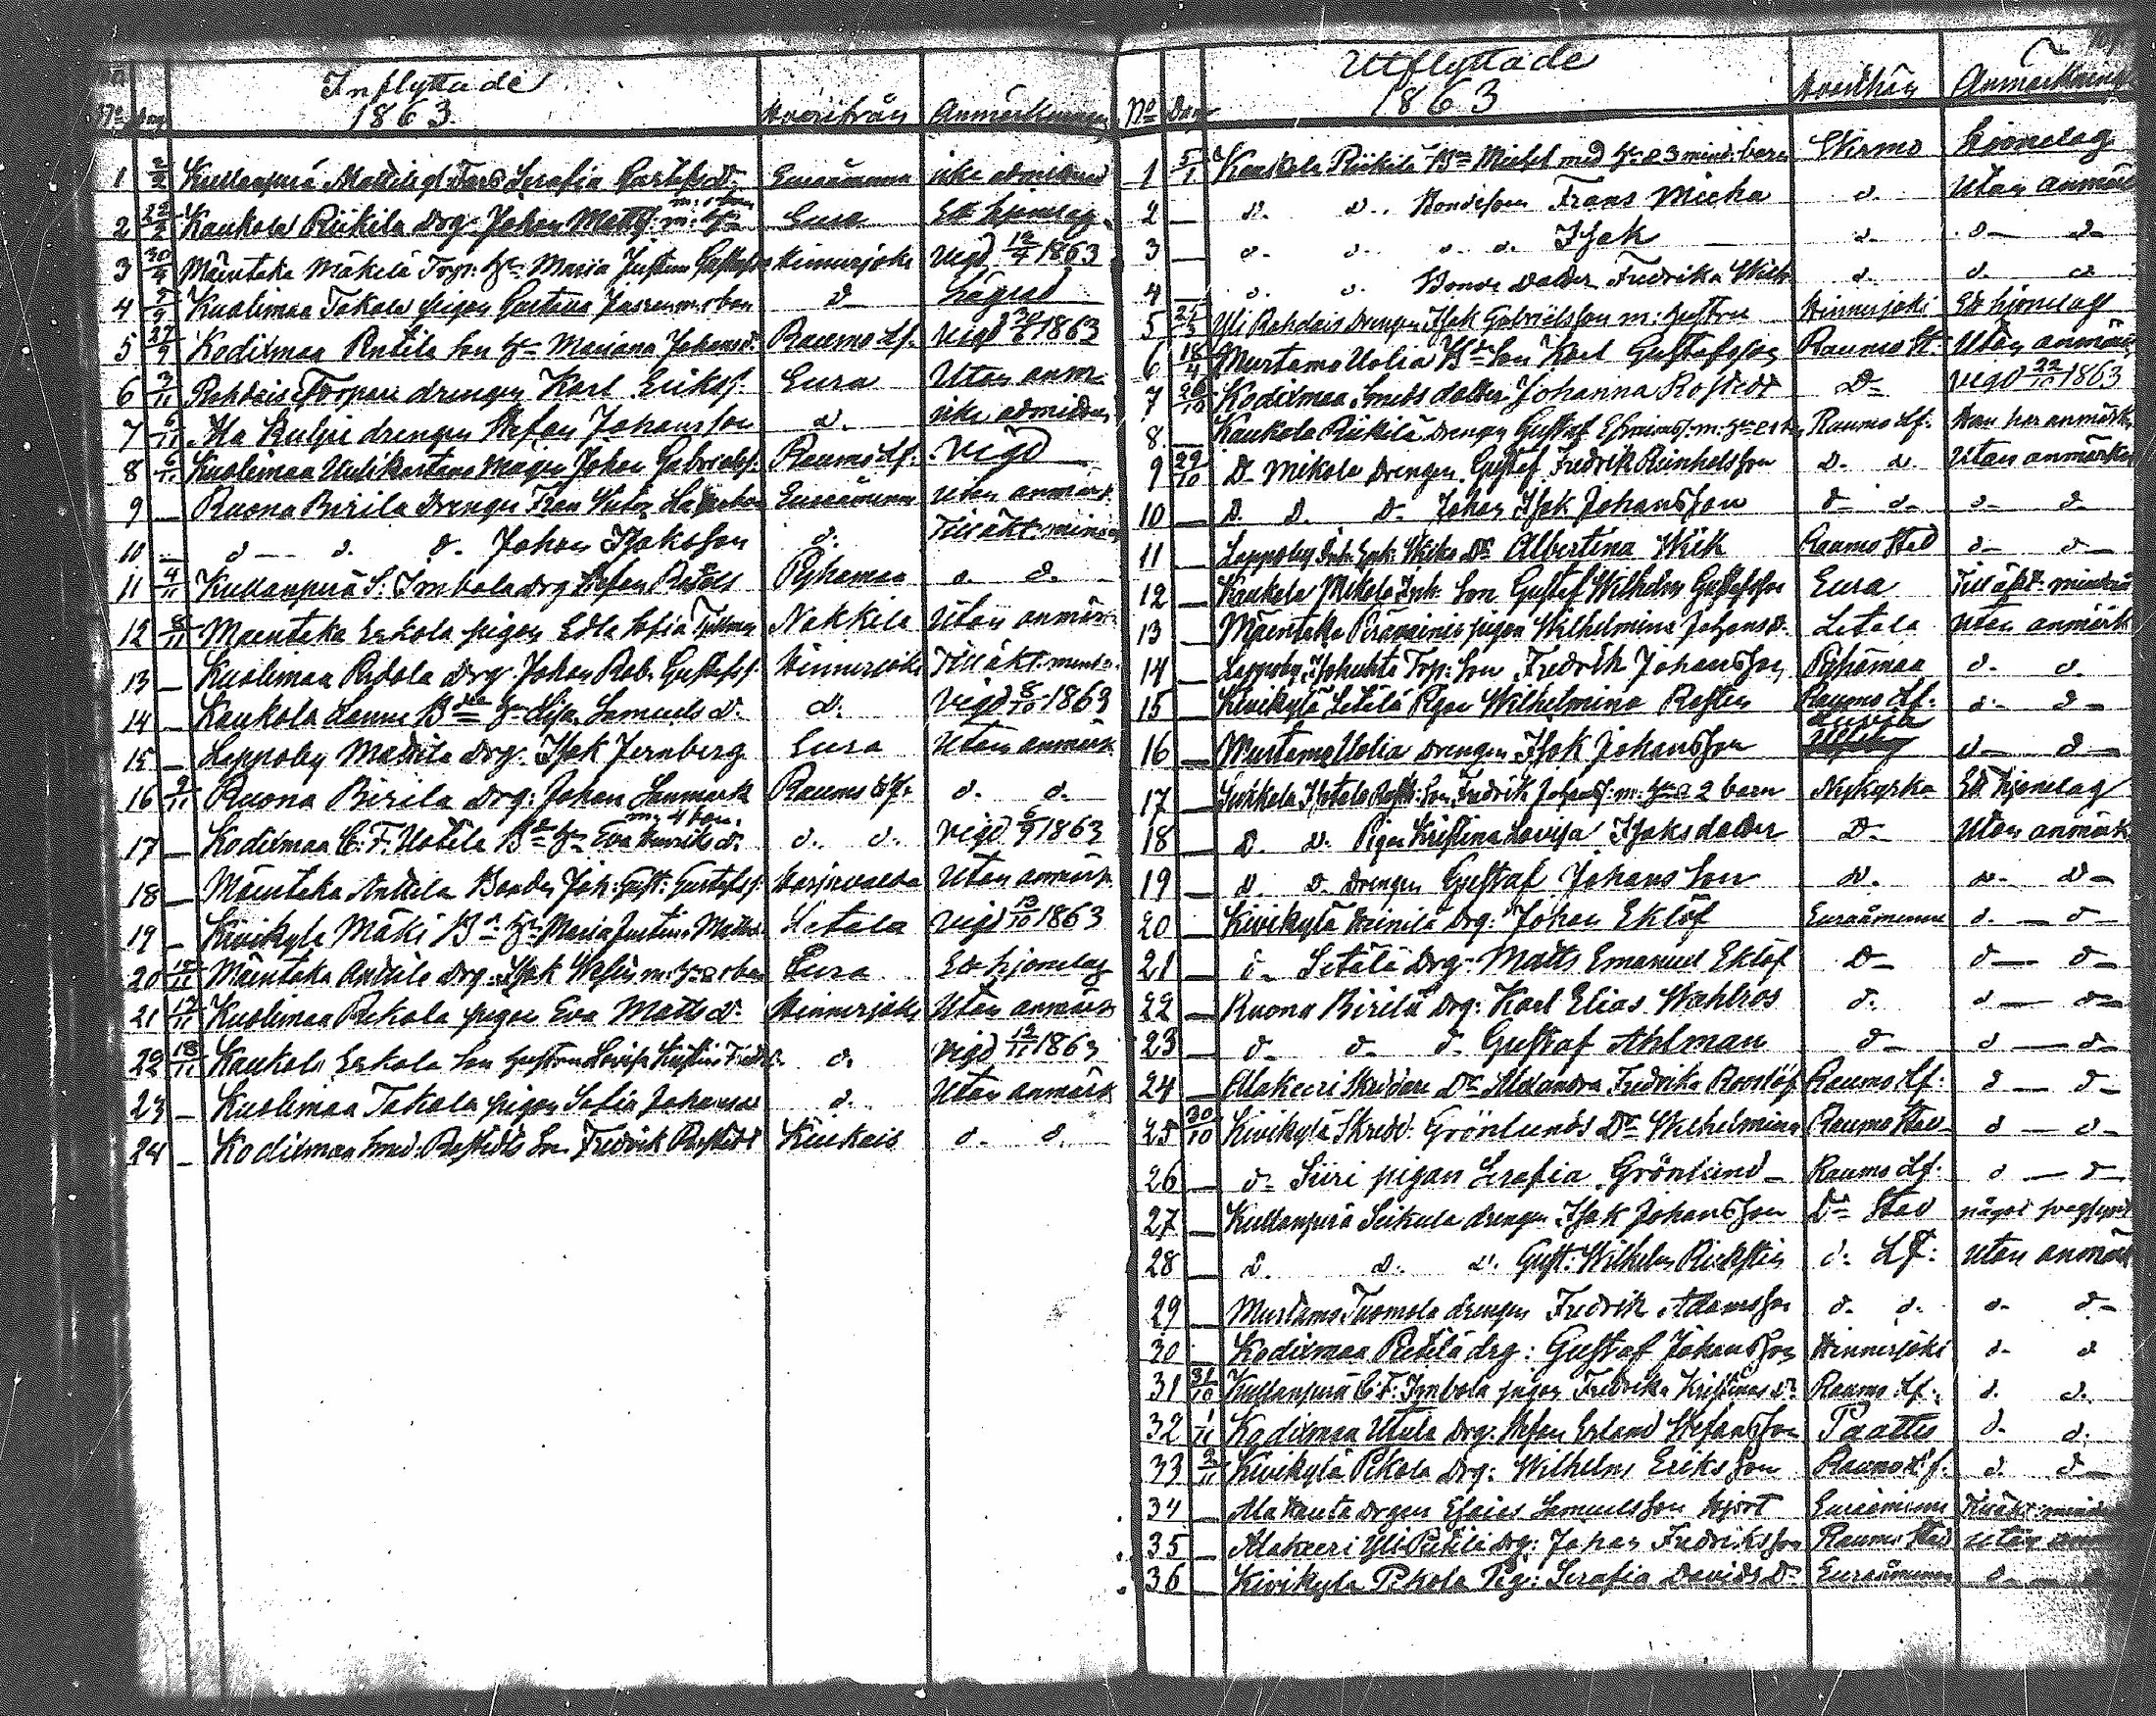 Inflyttade
1863
No Dag Hvarifrån Anmärkningar
1 2/2 Kullanperä Mattila gl. Serafia d. Euraåminne icke admitterad
2 22/2 Kaukola Riikilä Drg. Johan Matts. m. h. m. 1 barn Eura Ett hjonelag
3 30/4 Mäentaka Mäkelä Torp. h. Maria Justina Gustafsd. Hinnerjoki vigd 12/4 1863
4 Kuolimaa Takala pigan Gustava m. 1 barn d.
5 27/9 Kodixmaa Rutila Son h. Mariana Johansd. Raumo Lf. vigd 1863
6 3/11 Rahdais Torpare drengen Karl Eriks. Eura Utan anm.
7 6/11 Ala Kulju drengen Stefan Johansson d. icke admitterad
8 6/11 Kuolimaa Uulikartano Mågen Johan Gabrielss. Raumo Lf. vigd
9 — Ruona Birilä Drengen Frans Victor Euraåminne Utan anmärk.
10 — d. d. d. Johan Isaksson d. Till äkt. mindr.
11 4/11 Kullanperä S. Imbala drg Stefan Pyhämaa d. d.
12 8/11 Mäentaka Erkola pigan Edla Sofia Nakkila Utan anmärk.
13 — Kuolimaa Drg. Johan Rob. Gustafss. Hinnerjoki Till äkt. mind.
14 — Kaukola Lanne B. h. Lisa Samuels d. d. vigd 8/10 1863
15 — Lappoby Mattila Drg. Isak Jernberg Eura Utan anmärk
16 9/11 Ruona Birilä Drg. Johan Lanmark Raumo Lf. d. d.
17 — Kodixmaa C. F. Uotila B. h. Eva Henriks d. m. 4 barn d. d. vigd 6/9 1863
18 — Mäentaka Anttila Bonden Joh. Gust. Gustafss. Harjavalta Utan anmärk
19 — Kivikylä Mäki B. h. Maria Justina Matts d. Letala vigd 13/10 1863
20 12/11 Mäentaka Anttila Drg. Isak m. h. o 1 barn Eura Ett hjonelag
21 17/11 Kuolimaa Pekola pigan Eva Matts d. Hinnerjoki Utan anmärk
22 18/11 Kaukola Erkola Son hustrun Lovisa Kristina d. vigd 12/11 1863
23 — Kuolimaa Takala pigan Sofia Johansd. d. Utan anmärk
24 — Kodixmaa Smed. Rostedts Son Fredrik Rostedt Kiukais d. d.
Utflyttade
1863
No Dag Hvarthän Anmärkning
1 5/1 Kaukola Riikilä B. Michel med h. o 3 mind. barn Wirmo Hjonelag
2 — d. d. Bondeson Frans Micka d. Utan anmärk
3 d. d. d. d. Isak — d. d. d.
4 d. d. Bonde dotter Fredrika Wilh. d. d. d.
5 25/3 Yli Rahdais Drengen Isak Gabrielsson m. hustru Hinnerjoki Ett hjonelag
6 18/4 Murtamo Uolia B. Son Karl Gustafsson Raumo St. Utan anmärk
7 26/10 Kodixmaa Smeds dotter Johanna Rostedt D. vigd 22/10 1863
8 — Kaukola Riikilä Drengen Gustaf m. h. Raumo Lf. Han har anmärk.
9 29/10 D. Mikola Drengen Gustaf Fredrik Reinholsson d. d. Utan anmärkn
10 — d. d. d. Johan Isak Johansson d. d. d. d.
11 — Lappoby Inh. Enk. Wiks Dr. Albertina Wik Raumo Stad d. d.
12 — Kaukola Mikola Inh. Son Gustaf Wilhelm Gustafsson Eura Till äkt. mindr.
13 — Mäentaka pigan Wilhelmina Johansd. Letala Utan anmärk
14 — Lappoby Torp. Son Fredrik Johansson Pyhämaa d. d.
15 — Kivikylä Setälä Pigan Wilhelmina Rosten Raumo Lf. d. d.
16 — Murtamo Uolia Drengen Isak Johansson Luvia d. d.
17 — Son Fredrik Johanss. m. h. o 2 barn Nykyrka Ett hjonelag
18 — d. d. Pigan Kristina Lovisa Isaksdotter D. Utan anmärk
19 — d. d. Drengen Gustaf Johansson d. d. d.
20 — Kivikylä Heinilä Drg. Johan Eklöf Euraåminne d. — d.
21 — d. Setälä Drg. Matts Emanuel Eklöf D. d. — d.
22 — Ruona Birilä Drg. Karl Elias Wahlros d. d. — d.
23 — d. d. d. Gustaf Ahlman d. d. — d.
24 — Alakeeri Skräddare Dr. Alexandra Fredrika Roslöf Raumo Lf. d. — d.
25 30/10 Kivikylä Skredd. Grönlunds Dr. Wilhelmina Raumo Stad d. — d.
26 — d. Siiri pigan Serafia Grönlund Raumo Lf. d. — d.
27 — Kullanperä Seikula drengen Isak Johansson D. Stad något svag
28 — d. d. d. Gust. Wilhelm d. Lf. Utan anmärk
29 — Murtamo Tuomola drengen Fredrik Adamsson d. d. d. d.
30 — Kodixmaa Rutila drg: Gustaf Johansson Hinnerjoki d. d.
31 31/10 Kullanperä C. F. Imbola pigan Fredrika Kristina d. Raumo Lf. d. d.
32 1/11 Kodixmaa Utula Drg. Stefan Erland Stefansson Paattis d. d.
33 2/11 Kivikylä Pekola Drg: Wilhelm Eriksson Raumo Lf. d. d.
34 — Ala Kanta drgen Esaias Samuelsson Hjort Euraåminne Till äkt. mind
35 — Alakeeri Yli Pietilä drg: Johan Fredriksson Raumo Stad Utan anm
36 — Kivikylä Pekola Pig: Serafia Davids Dr. Euraåminne d.